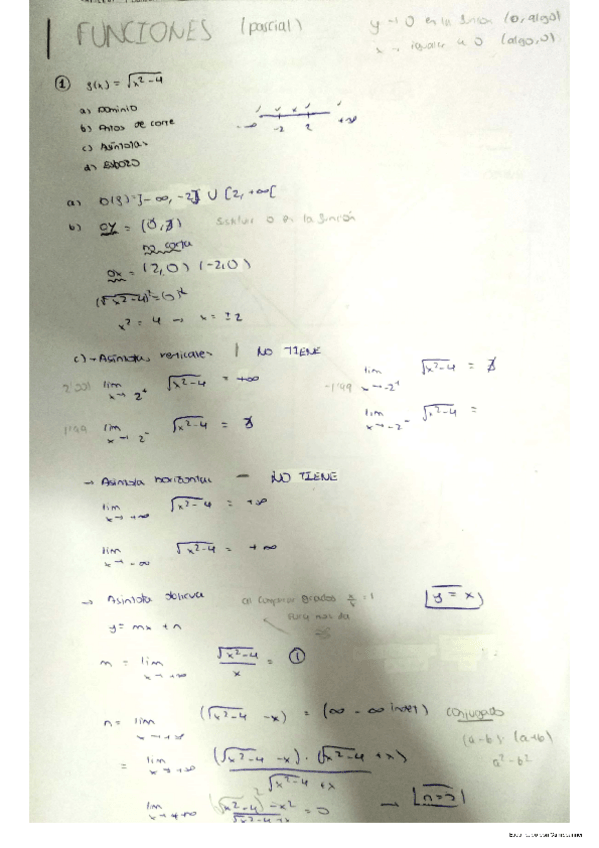 FUNCIONES (parcial)
y → 0 en la función (0, algo)
x → igualar a 0 (algo, 0)
① f(x) = √x²-4
a) Dominio
b) Ptos de corte
c) Asíntotas
d) Esbozo
-∞ -2 2 +∞
a) D(f) = ]-∞, -2] ∪ [2, +∞[
b) OY = (0, ∄) Sustituir 0 en la función
no corta
OX = (2,0) (-2,0)
(√x²-4)² = (0)²
x² = 4 → x = ±2
c) → Asíntotas verticales | NO TIENE
2'001 lim x→2⁺ √x²-4 = +∞
-1'99 lim x→-2⁺ √x²-4 = ∄
1'99 lim x→2⁻ √x²-4 = ∄
lim x→-2⁻ √x²-4 =
→ Asíntota horizontal — NO TIENE
lim x→+∞ √x²-4 = +∞
lim x→-∞ √x²-4 = +∞
→ Asíntota oblicua
y = x
y = mx + n
m = lim x→+∞ √x²-4 / x = ①
n = lim x→+∞ (√x²-4 - x) = (∞ - ∞ indet) conjugado
(a-b)·(a+b)
a² - b²
= lim x→+∞ (√x²-4 - x)·(√x²-4 + x) / √x²-4 + x
lim x→+∞ (√x²-4)² - x² / √x²-4 + x = 0 →